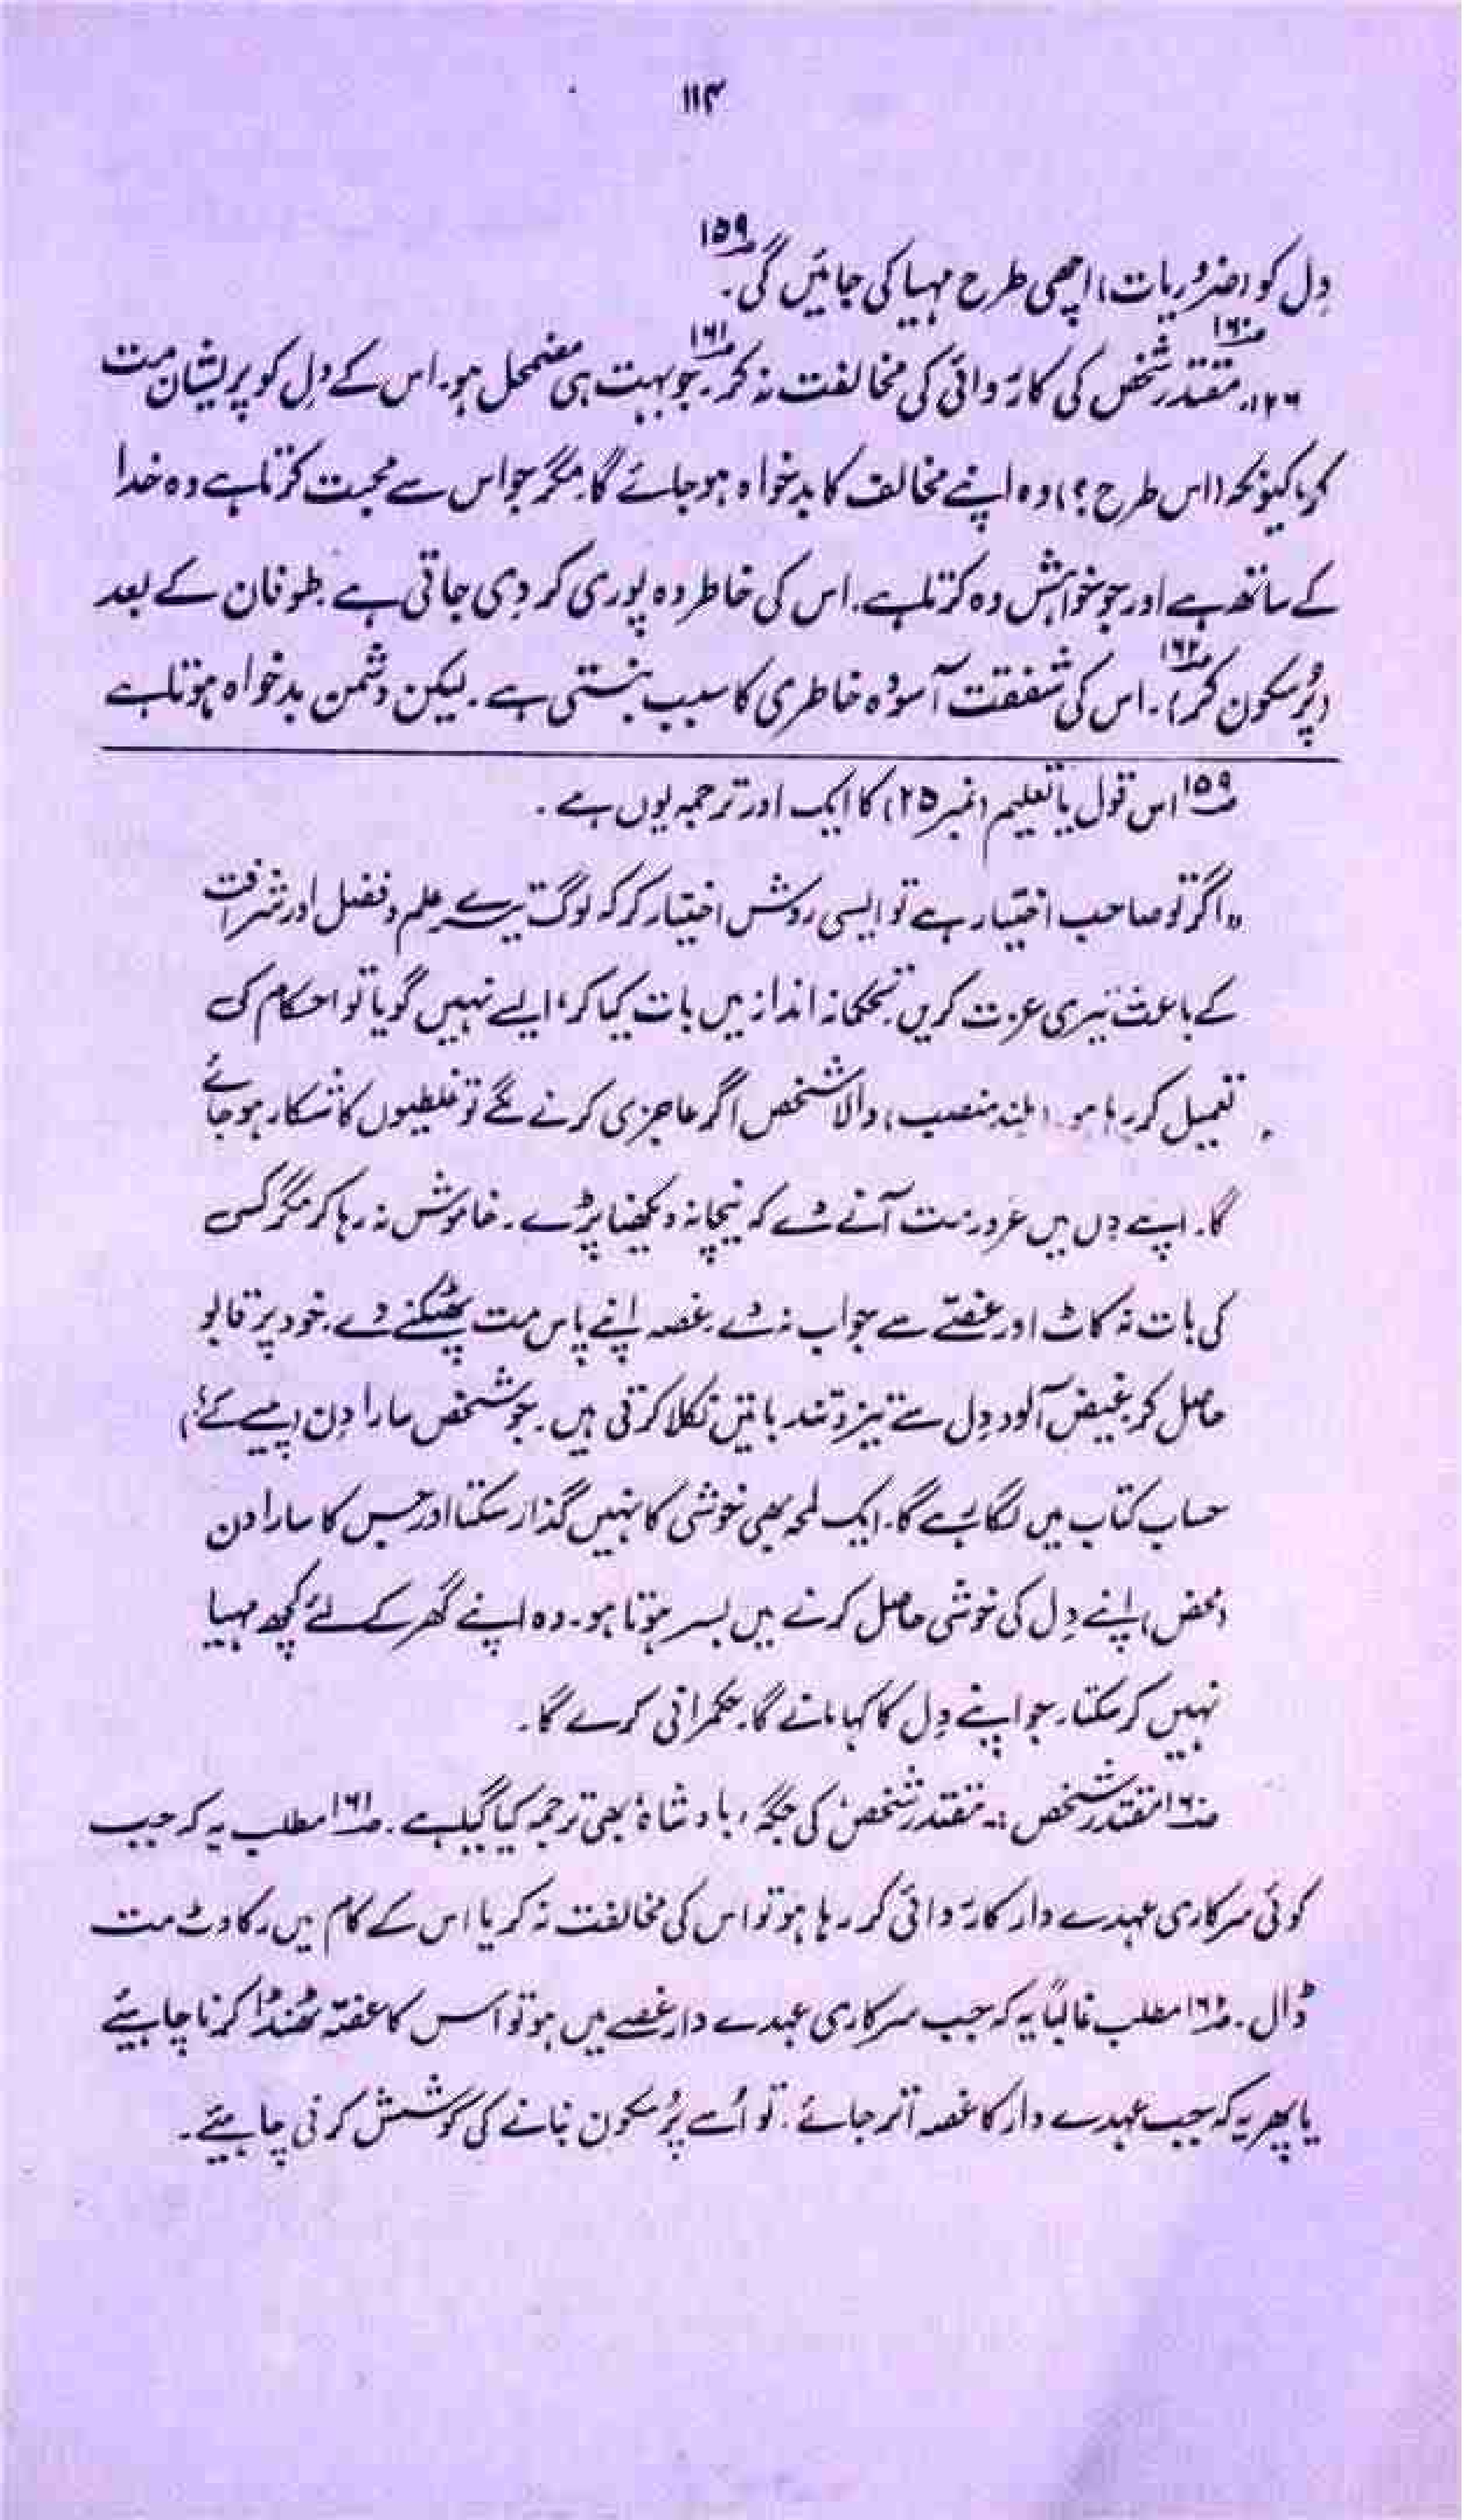 ۱۱۴
دِل کو (ضرُوریات) اچھی طرح مہیا کی جائیں گی۔ ۱۵۹
۲۶۔ مقتدر شخص ۱۶۰ کی کارروائی کی مخالفت نہ کر۔ ۱۶۱ جو بہت ہی مضمحل ہو۔ اس کے دِل کو پریشان مت
کر، کیونکہ (اس طرح؟) وہ اپنے مخالف کا بدخواہ ہو جائے گا۔ مگر جو اس سے محبت کرتا ہے وہ خدا
کے ساتھ ہے اور جو خواہش وہ کرتا ہے۔ اس کی خاطر وہ پوری کر دی جاتی ہے۔ طوفان کے بعد
(پُرسکون کر) ۱۶۲۔ اس کی شفقت آسودہ خاطری کا سبب بنتی ہے۔ لیکن دشمن بدخواہ ہوتا ہے
۱۵۹ اس قول یا تعلیم (نمبر ۲۵) کا ایک اور ترجمہ یوں ہے۔
"اگر تو صاحب اختیار ہے تو ایسی روش اختیار کر کہ لوگ تیرے علم و فضل اور شرافت
کے باعث تیری عزت کریں۔ تحکمانہ انداز میں بات کیا کر، ایسے نہیں گویا تو احکام کی
تعمیل کر رہا ہو۔ (بلند منصب) والا شخص اگر عاجزی کرنے لگے تو غلطیوں کا شکار ہو جائے
گا۔ اپنے دل میں غرور مت آنے دے کہ نیچا نہ دیکھنا پڑے۔ خاموش نہ رہا کر مگر کسی
کی بات نہ کاٹ اور غصّے سے جواب نہ دے۔ غصہ اپنے پاس مت پھٹکنے دے۔ خود پر قابو
حاصل کر۔ غیض آلود دِل سے تیز و تند باتیں نکلا کرتی ہیں۔ جو شخص سارا دِن (پیسے کے؟)
حساب کتاب میں لگا رہے گا۔ ایک لمحہ بھی خوشی کا نہیں گذار سکتا اور جس کا سارا دن
(محض) اپنے دِل کی خوشی حاصل کرنے میں بسر ہوتا ہو۔ وہ اپنے گھر کے لئے کچھ مہیا
نہیں کر سکتا۔ جو اپنے دِل کا کہا مانے گا۔ حکمرانی کرے گا۔
۱۶۰ مقتدر شخص :۔ مقتدر شخص کی جگہ، بادشاہ، بھی ترجمہ کیا گیا ہے۔ ۱۶۱ مطلب یہ کہ جب
کوئی سرکاری عہدے دار کارروائی کر رہا ہو تو اس کی مخالفت نہ کر یا اس کے کام میں رکاوٹ مت
ڈال۔ ۱۶۲ مطلب غالباً یہ کہ جب سرکاری عہدے دار غصے میں ہو تو اس کا غصّہ ٹھنڈا کرنا چاہیئے
یا پھر یہ کہ جب عہدے دار کا غصہ اتر جائے۔ تو اُسے پُرسکون بنانے کی کوشش کرنی چاہیئے۔